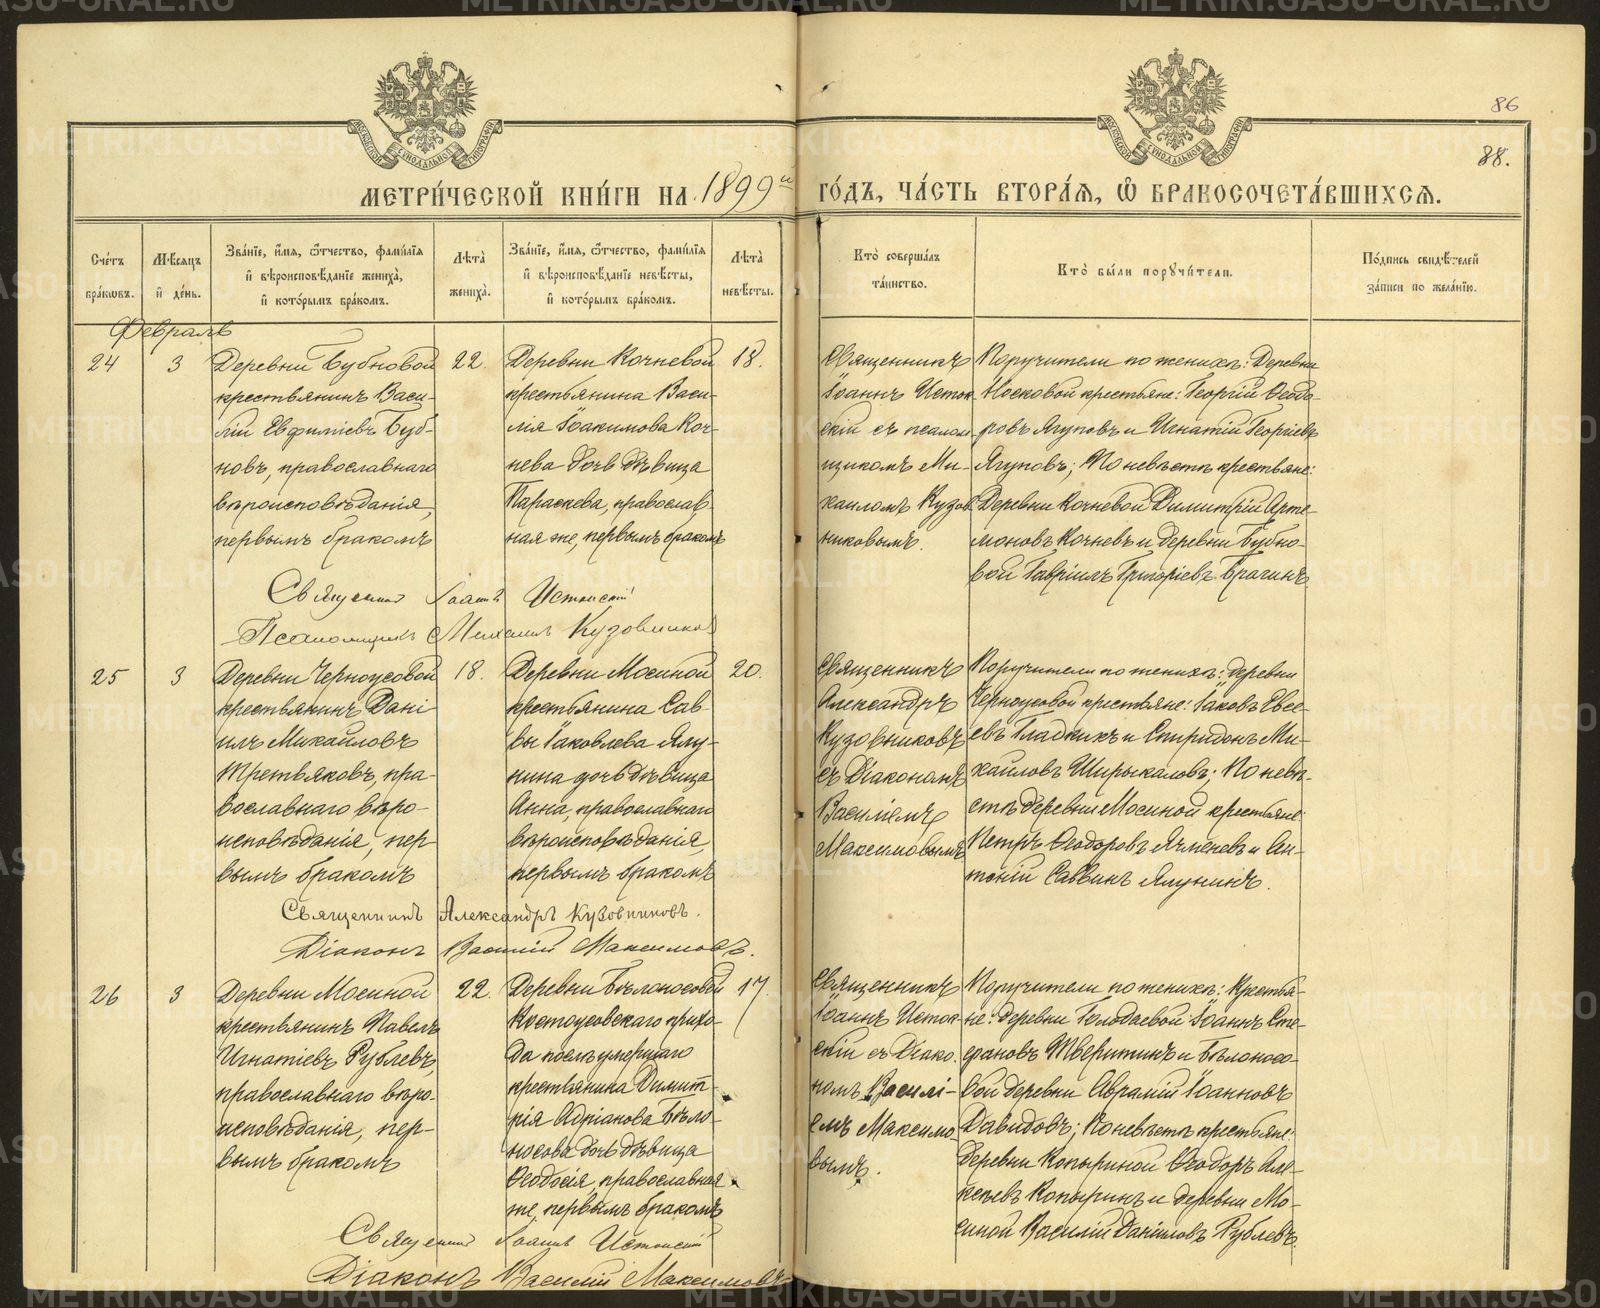 86
88.
МЕТРИ́ЧЕСКОЙ КНИ́ГИ НА 1899й ГО́ДЪ, ЧА́СТЬ ВТОРА́Я, Ѡ БРАКОСОЧЕТА́ВШИХСЯ.
Сче́тъ бра́кωвъ.
Мѣ́сяцъ и҆ де́нь.
Зва́нїе, и҆́мя, ѻ҆́тчество, фами́лїя
и҆ вѣроисповѣ́данїе жениха̀,
и҆ кото́рымъ бра́комъ.
Лѣ́та̀ жениха̀.
Зва́нїе, и҆́мя, ѻ҆́тчество, фами́лїя
и҆ вѣроисповѣ́данїе невѣ́сты,
и҆ кото́рымъ бра́комъ.
Лѣ́та̀ невѣ́сты.
Кто̀ соверша́лъ
та́инство.
Кто̀ бы́ли порꙋчи́тели.
По́дпись свидѣ́телей
за́писи по жела́нїю.
Февраль
24
3
Деревни Бубновой
крестьянинъ Васи-
лій Евфиміевъ Буб-
новъ, православнаго
вѣроисповѣданія,
первымъ бракомъ
22.
Деревни Кочневой
крестьянина Васи-
лія Іоакимова Коч-
нева дочь дѣвица
Параскева, православ-
ная же, первымъ бракомъ
18.
Священникъ
Іоаннъ Исток-
скій съ псалом-
щикомъ Ми-
хаиломъ Кузов-
никовымъ.
Поручители по женихѣ: Деревни
Носковой крестьяне: Георгій Ѳеодо-
ровъ Ягуповъ и Игнатій Георгіевъ
Ягуповъ; По невѣстѣ крестьяне:
Деревни Кочневой Димитрій Арте-
моновъ Кочневъ и деревни Бубно-
вой Гавріилъ Григоріевъ Брагинъ.
Священникъ Іоаннъ Истокскій
Псаломщикъ Михаилъ Кузовниковъ
25
3
Деревни Черноусовой
крестьянинъ Дані-
илъ Михайловъ
Третьяковъ, пра-
вославнаго вѣро-
исповѣданія, пер-
вымъ бракомъ
18.
Деревни Мосиной
крестьянина Сав-
вы Іаковлева Ялу-
нина дочь дѣвица
Анна, православнаго
вѣроисповѣданія,
первымъ бракомъ
20.
Священникъ
Александръ
Кузовниковъ
съ Діакономъ
Василіемъ
Максимовымъ
Поручители по женихѣ: деревни
Черноусовой крестьяне: Іаковъ Евсе-
евъ Гладкихъ и Спиридонъ Ми-
хайловъ Ширыкаловъ; По невѣ-
стѣ деревни Мосиной крестьяне:
Петръ Ѳеодоровъ Ячменевъ и Ан-
тоній Саввинъ Ялунинъ.
Священникъ Александръ Кузовниковъ.
Діаконъ Василій Максимовъ.
26
3
Деревни Мосиной
крестьянинъ Павелъ
Игнатіевъ Рублевъ,
православнаго вѣро-
исповѣданія, пер-
вымъ бракомъ
22.
Деревни Бѣлоносовой
Костоусовскаго прихо-
да послѣ умершаго
крестьянина Димит-
рія Адріанова Бѣло-
носова дочь дѣвица
Ѳеодосія, православная
же, первымъ бракомъ
17.
Священникъ
Іоаннъ Исток-
скій съ Діако-
номъ Василі-
емъ Максимо-
вымъ.
Поручители по женихѣ: Крестья-
не: деревни Голодаевой Іоаннъ Сте-
фановъ Тверитинъ и Бѣлоносо-
вой деревни Аврамій Іоанновъ
Давидовъ; По невѣстѣ крестьяне:
деревни Копыриной Ѳеодоръ Але-
ксѣевъ Копыринъ и деревни Мо-
синой Василій Даниловъ Рублевъ.
Священникъ Іоаннъ Истокскій
Діаконъ Василій Максимовъ
METRIKI.GASO-URAL.RU